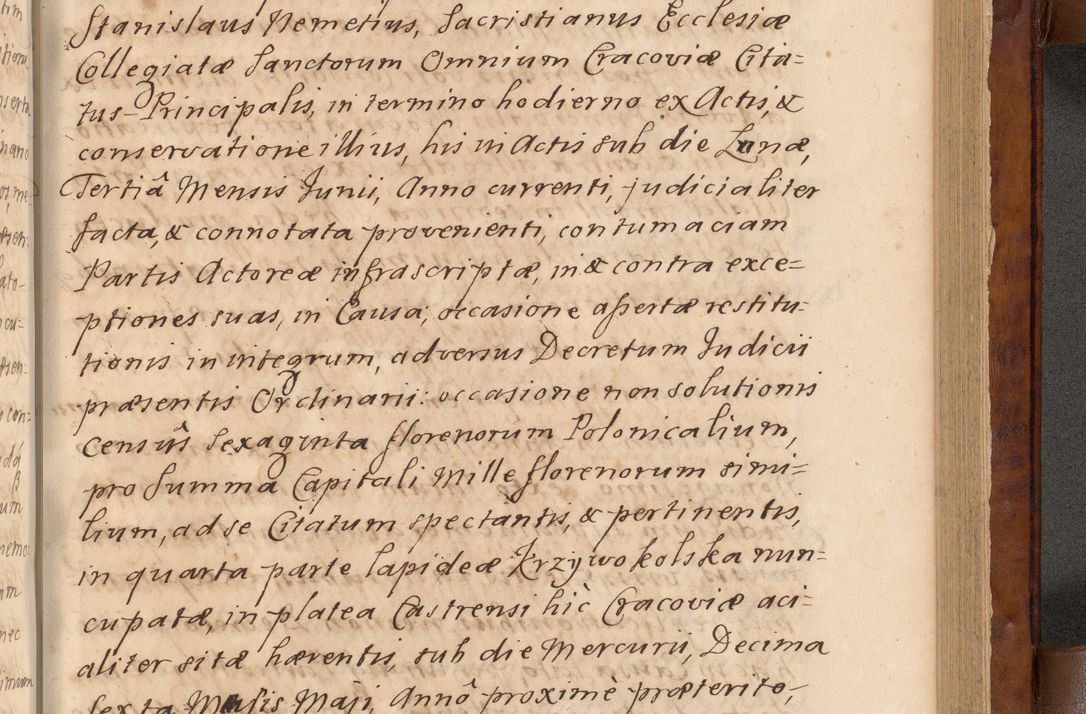 Stanislaus Nemetius, Sacristianus Ecclesiæ
Collegiatæ Sanctorum Omnium Cracoviæ Cita=
tus Principalis, in termino hodierno ex Actis, &
conservatione illius, his in Actis sub die Lunæ,
Tertiâ Mensis Junii, Anno currenti, judicialiter
facta, & connotata provenienti, contumaciam
Partis Actoreæ infrascriptæ, in & contra exce=
ptiones suas, in Causa, occasione assertæ restitu=
tionis in integrum, adversus Decretum Judicii
præsentis Ordinarii: occasione non solutionis
Censûs Sexaginta florenorum Polonicalium,
pro Summa Capitali Mille florenorum simi=
lium, ad se Citatum spectantis, & pertinentis,
in quarta parte lapideæ Krzywokolska nun=
cupatæ, in platea Castrensi hìc Cracoviæ aci=
aliter sitæ hærentis, sub die Mercurii, Decima
Sexta Mensis Maji, Annô proximè præterito,